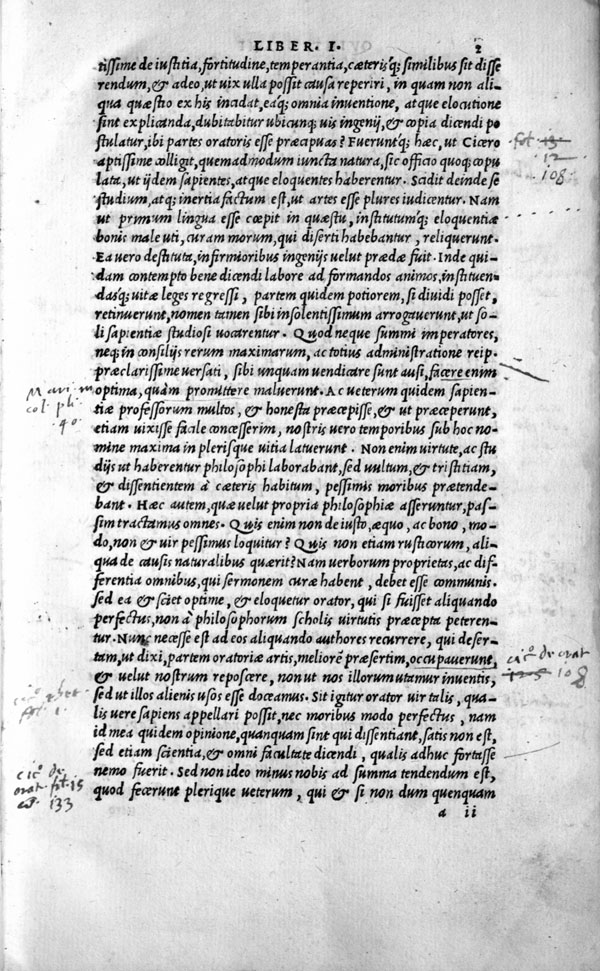 LIBER. I. 2
tissime de iustitia, fortitudine, temperantia, cæteris'q; similibus sit disse
rendum, & adeo, ut uix ulla possit causa reperiri, in quam non ali-
qua quæstio ex his incidat, ea'q; omnia inuentione, atque elocutione
sint explicanda, dubitabitur ubicunq; uis ingenij, & copia dicendi po
stulatur, ibi partes oratoris esse præcipuas? Fuerunt'q; hæc, ut Cicero
aptissime colligit, quemadmodum iuncta natura, sic officio quoq; copu
lata, ut ijdem sapientes, atque eloquentes haberentur. Scidit deinde se
studium, atq; inertia factum est, ut artes esse plures iudicentur. Nam
ut primum lingua esse cœpit in quæstu, institutum'q; eloquentiæ
bonis male uti, curam morum, qui diserti habebantur, reliquerunt.
Ea uero destituta, infirmioribus ingenijs uelut prædæ fuit. Inde qui-
dam contempto bene dicendi labore ad formandos animos, instituen-
das'q; uitæ leges regressi, partem quidem potiorem, si diuidi posset,
retinuerunt, nomen tamen sibi insolentissimum arrogauerunt, ut so-
li sapientiæ studiosi uocarentur. Quod neque summi imperatores,
neq; in consilijs rerum maximarum, ac totius administratione reip.
præclarissime uersati, sibi unquam uendicare sunt ausi, facere enim
optima, quàm promittere maluerunt. Ac ueterum quidem sapien-
tiæ professorum multos, & honesta præcepisse, & ut præceperunt,
etiam uixisse facile concesserim, nostris uero temporibus sub hoc no-
mine maxima in plerisque uitia latuerunt. Non enim uirtute, ac stu
dijs ut haberentur philosophi laborabant, sed uultum, & tristitiam,
& dissentientem à cæteris habitum, pessimis moribus prætende-
bant. Hæc autem, quæ uelut propria philosophiæ asseruntur, pas-
sim tractamus omnes. Quis enim non de iusto, æquo, ac bono, mo-
do, non & uir pessimus loquitur? Quis non etiam rusticorum, ali-
qua de causis naturalibus quærit? Nam uerborum proprietas, ac dif-
ferentia omnibus, qui sermonem curæ habent, debet esse communis.
sed ea & sciet optime, & eloquetur orator, qui si fuisset aliquando
perfectus, non à philosophorum scholis uirtutis præcepta peteren-
tur. Nunc necesse est ad eos aliquando authores recurrere, qui deser-
tam, ut dixi, partem oratoriæ artis, meliorẽ præsertim, occupauerunt,
& uelut nostrum reposcere, non ut nos illorum utamur inuentis,
sed ut illos alienis usos esse doceamus. Sit igitur orator uir talis, qua-
lis uere sapiens appellari possit, nec moribus modo perfectus, nam
id mea quidem opinione, quanquam sint qui dissentiant, satis non est,
sed etiam scientia, & omni facultate dicendi, qualis adhuc fortasse
nemo fuerit. Sed non ideo minus nobis ad summa tendendum est,
quod fecerunt plerique ueterum, qui & si non dum quenquam
a ii
12
108
40.
cic° de orat
108
cic° de
orat
133